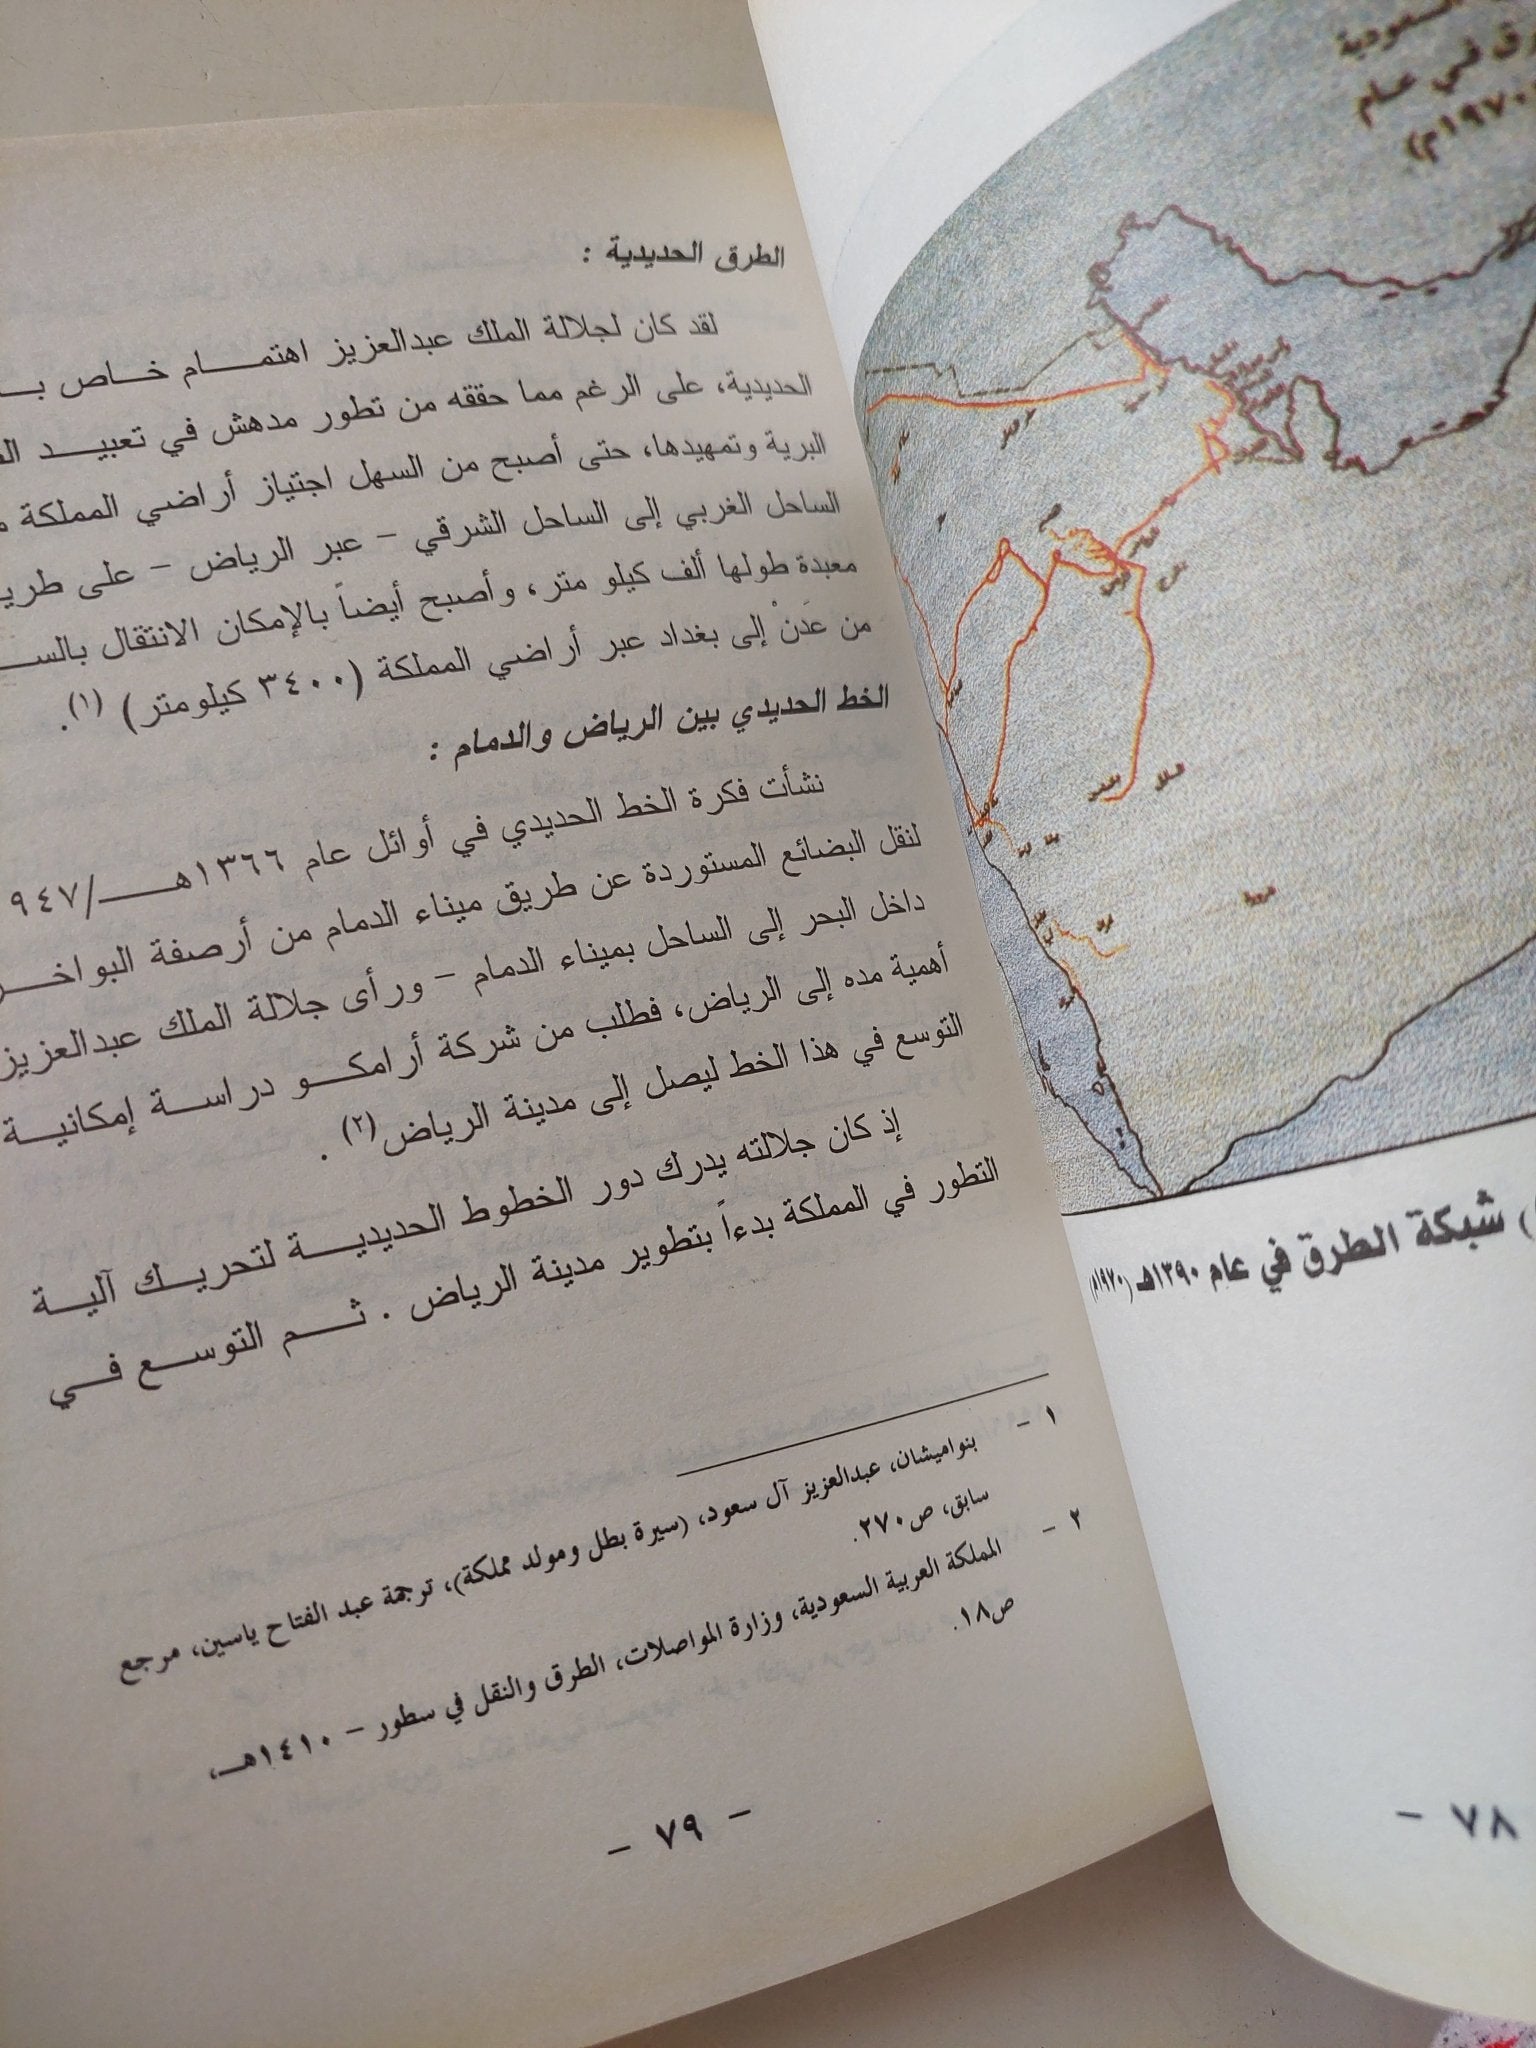 السعودية
في عام
١٩٧٠م)
شبكة الطرق في عام ١٣٩٠هـ (١٩٧٠م)
٧٨ -
الطرق الحديدية :
لقد كان لجلالة الملك عبدالعزيز اهتمـــام خـــاص
الحديدية، على الرغم مما حققه من تطور مدهش في تعبيـــد
البرية وتمهيدها، حتى أصبح من السهل اجتياز أراضي المملكة
الساحل الغربي إلى الساحل الشرقي - عبر الرياض - على
معبدة طولها ألف كيلو متر، وأصبح أيضاً بالإمكان الانتقال
من عدَنْ إلى بغداد عبر أراضي المملكة (٣٤٠٠ كيلومتر) (١).
الخط الحديدي بين الرياض والدمام :
نشأت فكرة الخط الحديدي في أوائل عام ١٣٦٦هــــ/٩٤٧
لنقل البضائع المستوردة عن طريق ميناء الدمام من أرصفة البواخـــر
داخل البحر إلى الساحل بميناء الدمام - ورأى جلالة الملك عبدالعزيز
أهمية مده إلى الرياض، فطلب من شركة أرامكـــو دراســـة إمكانيـــة
التوسع في هذا الخط ليصل إلى مدينة الرياض(٢) .
إذ كان جلالته يدرك دور الخطوط الحديديـــة لتحريـــك آليـــة
التطور في المملكة بدءاً بتطوير مدينة الرياض . ثـــم التوســـع فـــي
١ - بنواميشان، عبدالعزيز آل سعود، (سيرة بطل ومولد مملكة)، ترجمة عبد الفتاح ياسين، مرجع
سابق، ص٢٧٠.
٢ - المملكة العربية السعودية، وزارة المواصلات، الطرق والنقل في سطور - ١٤١٠هـ،
ص١٨.
- ٧٩ -